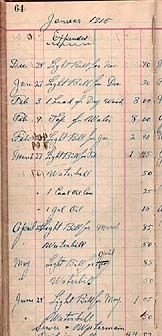 64
January 1915
Expenses
Dec 28 Light Bill for Nov 70
Jan 21 Light Bill for Dec 50
Feb 3 1 Load of Dry Wood 3 00
Feb 9 Tap for Water 8 00
Feb Light Bill for Jan 2 90
March 27 Light Bill for Feb 1 45
" Waterbill 50
" 1 Coal Oil Can 25
" 1 gal Oil 15
April 24 Light Bill for March 85
Waterbill 50
May Light Bill for April 85
" Waterbill 50
June 28 Light Bill for May 1 05
" Waterbill 50
Sewer & Watermain